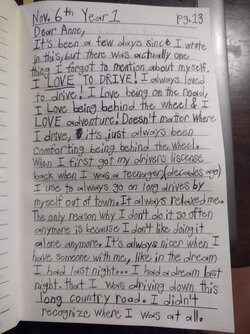 Nov. 6th Year 1
pg. 13
Dear Anne,
It's been a few days since I wrote
in this, but there was actually one
thing I forgot to mention about myself.
I LOVE TO DRIVE! I always loved
to drive! I love being on the road,
I love being behind the wheel & I
LOVE adventure! Doesn't matter where
I drive, it's just always been
comforting being behind the wheel.
When I first got my drivers liscense
back when I was a teenager (decades ago)
I use to always go on long drives by
myself out of town. It always relaxed me.
The only reason why I don't do it so often
anymore is because I don't like doing it
alone anymore. It's always nicer when I
have someone with me, like in the dream
I had last night... I had a dream last
night that I was driving down this
long country road. I didn't
recognize where I was at all.